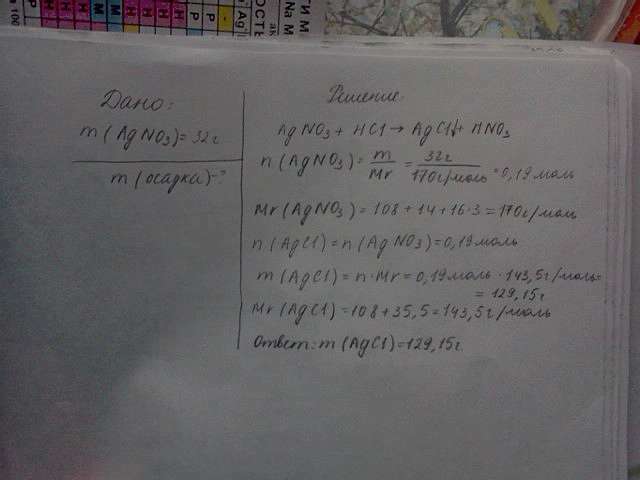 Дано:
m(AgNO3)=32г
m(осадка)-?
Решение:
AgNO3+HCl→AgCl↓+HNO3
n(AgNO3)=m/Mr=32г/170г/моль=0,19моль
Mr(AgNO3)=108+14+16·3=170г/моль
n(AgCl)=n(AgNO3)=0,19моль
m(AgCl)=n·Mr=0,19моль·143,5г/моль=
=129,15г
Mr(AgCl)=108+35,5=143,5г/моль
Ответ:m(AgCl)=129,15г